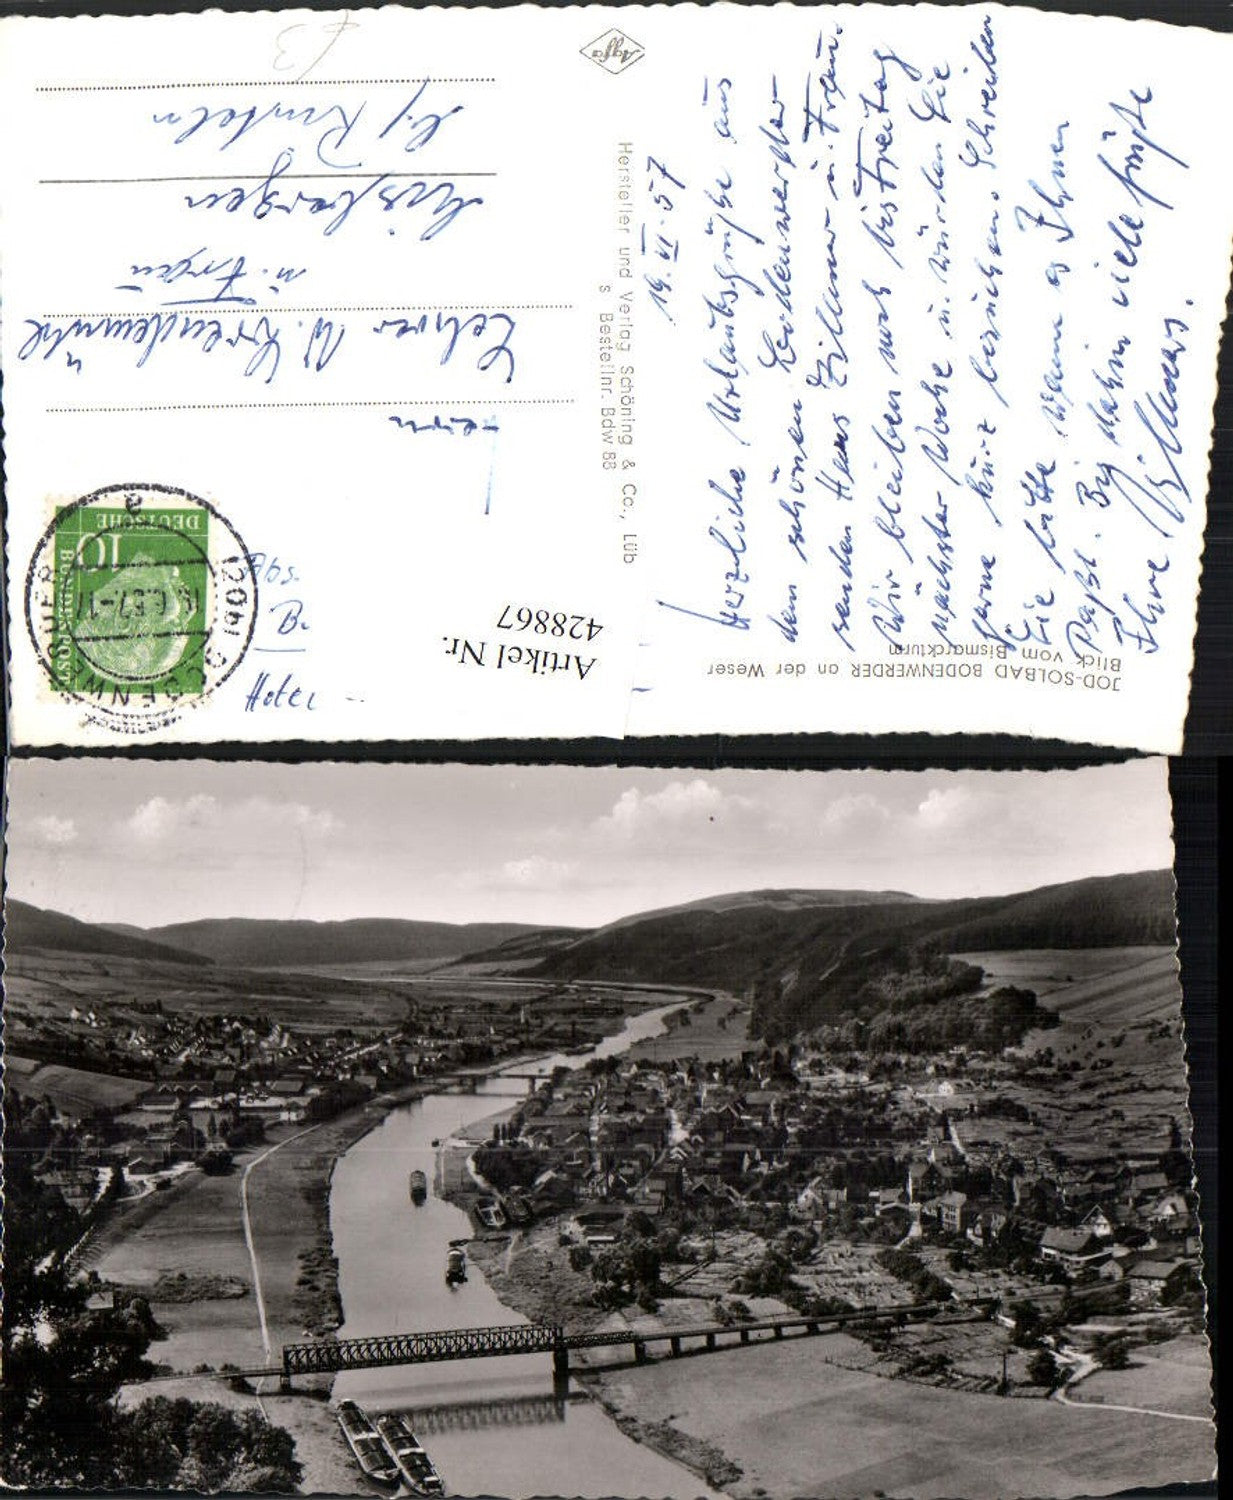 JOD-SOLBAD BODENWERDER an der Weser
Blick vom Bismarckturm
19. VI. 57
Herzliche Urlaubsgrüße aus
dem schönen Bodenwerder
senden Hans Zillmer u. Frau.
Wir bleiben noch bis Freitag
nächster Woche u. würden Sie
gerne kurz besuchen. Schreiben
Sie bitte wann es Ihnen
paßt. Bis dahin viele Grüße
Ihre Zillmers.
Agfa
Hersteller und Verlag Schöning & Co., Lüb
s Bestellnr. Bdw 88
DEUTSCHE
BUNDESPOST
10
(20b)
BODENWERDER
a
Herrn
Lehrer W.
u. Frau
Rinteln
Abs.
B.
Hotel
Artikel Nr.
428867